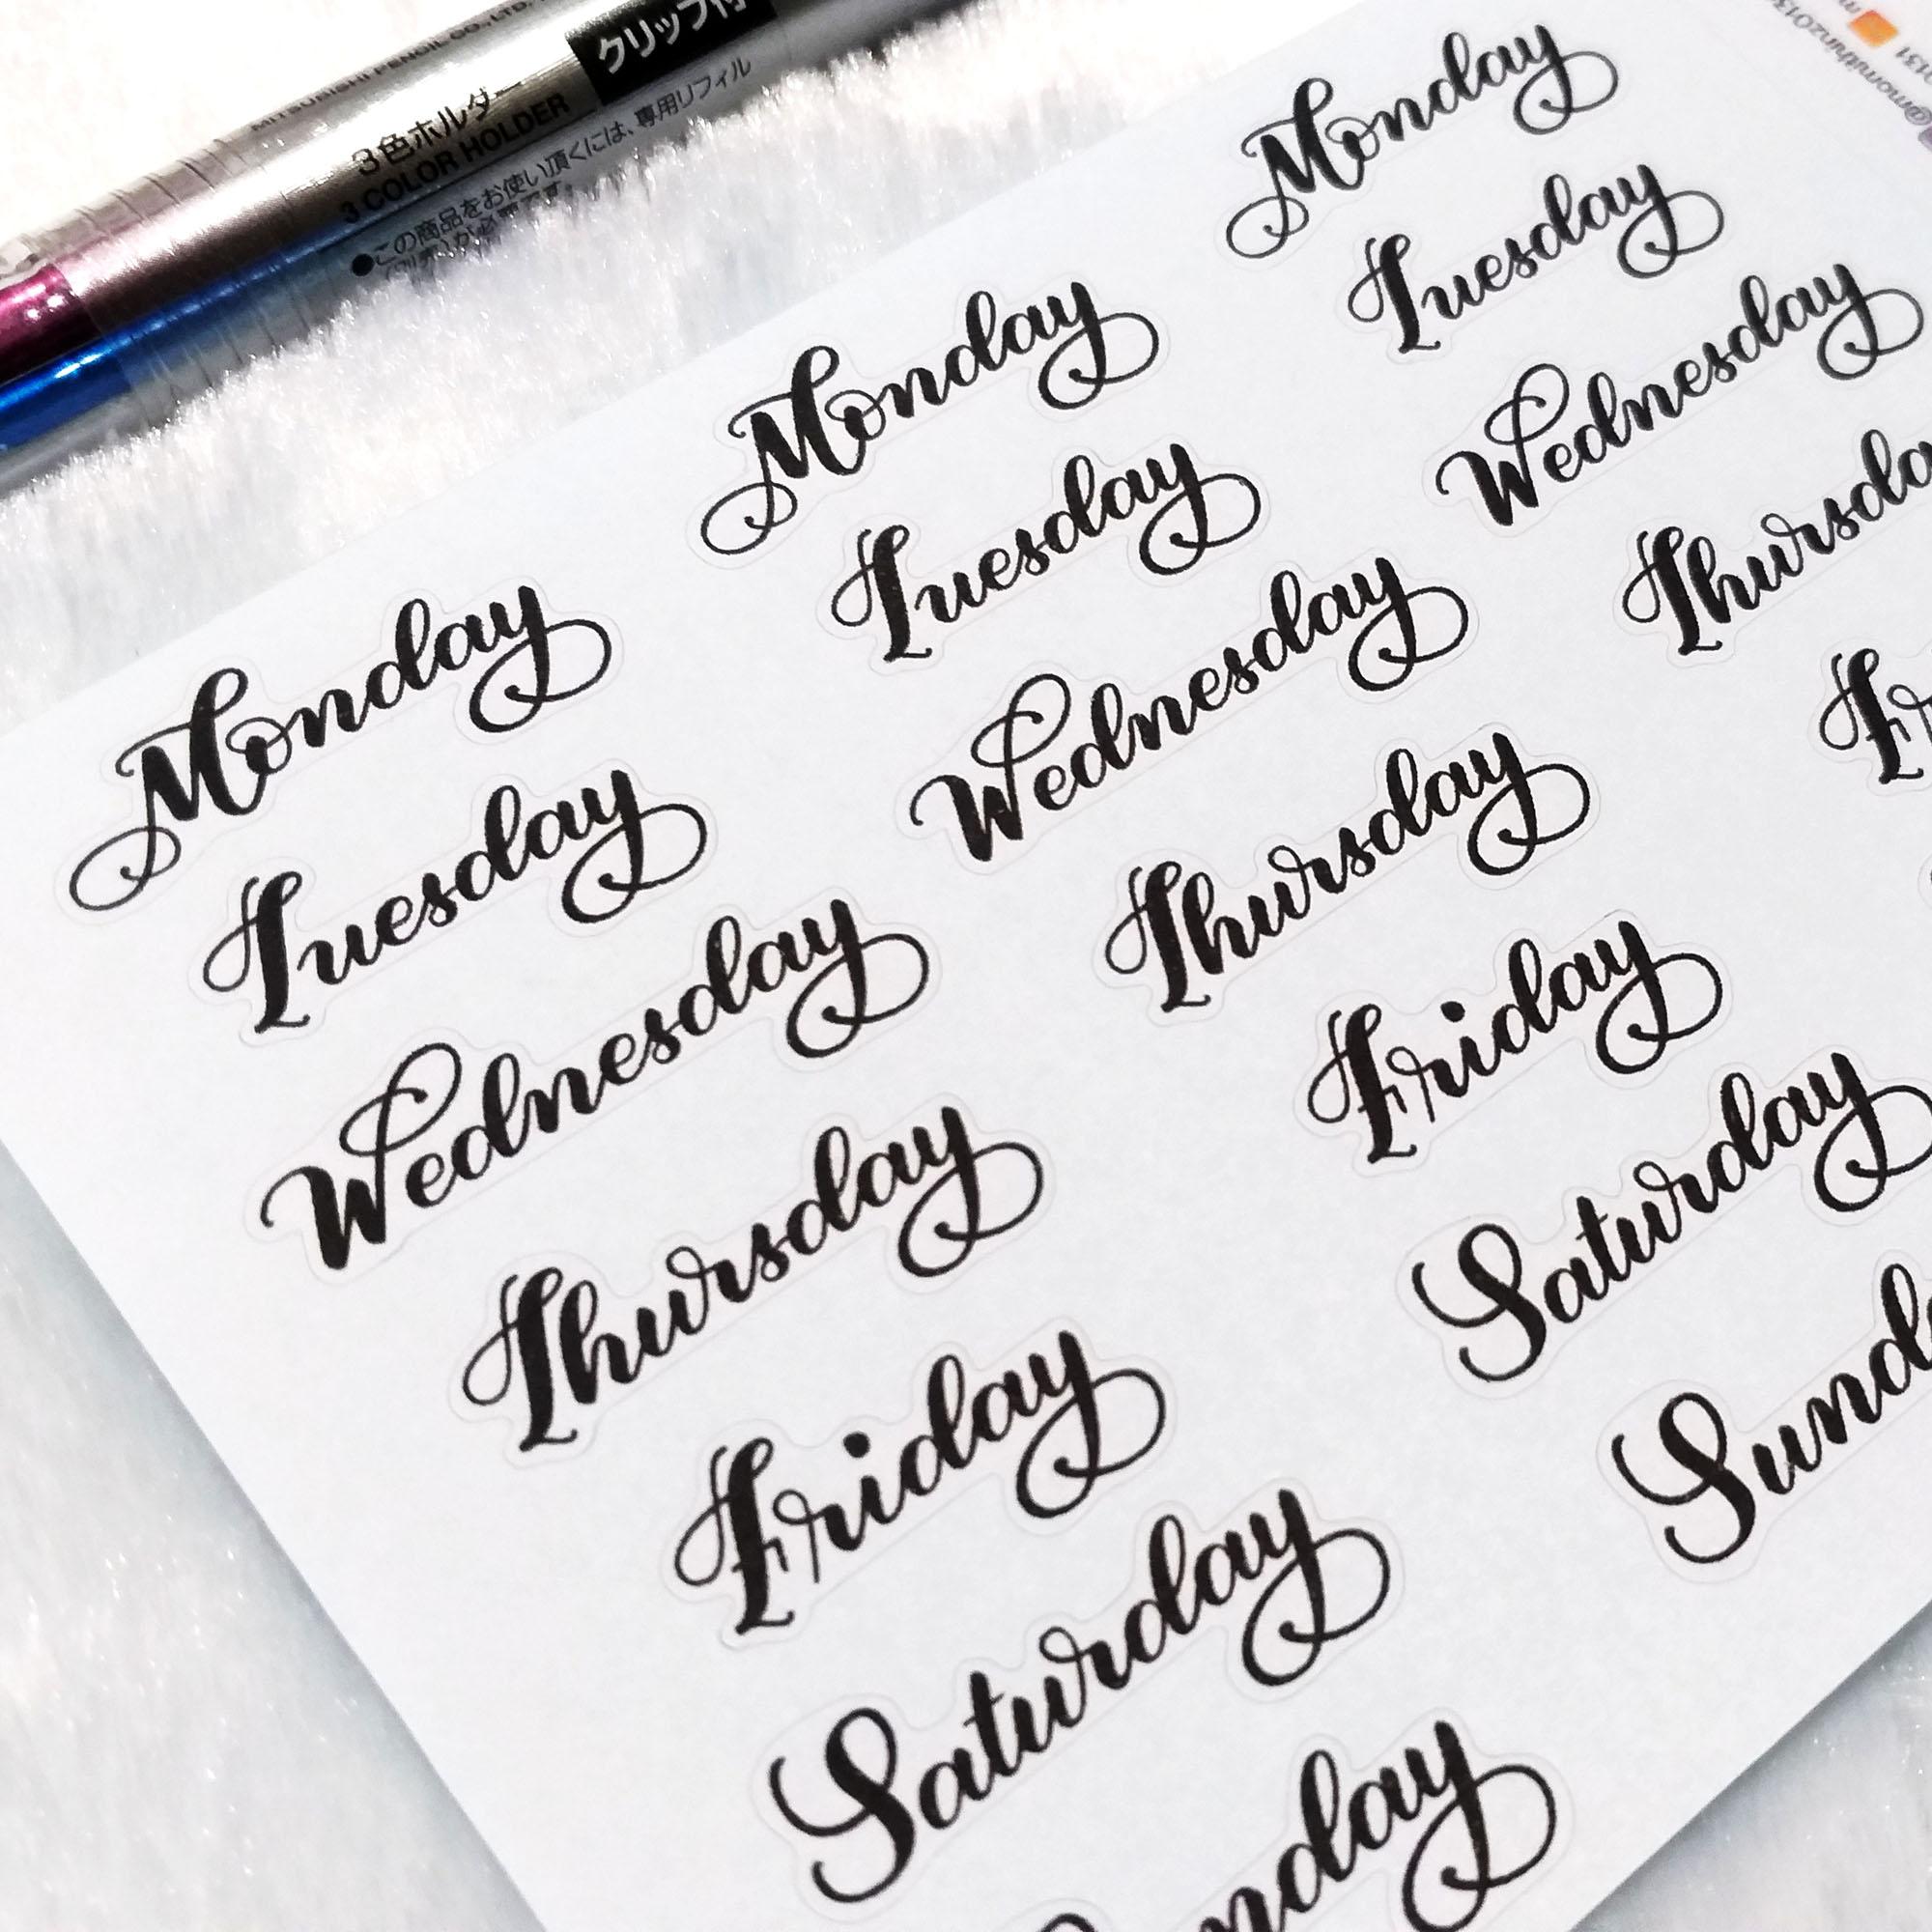 MITSUBISHI PENCIL CO., LTD.
クリップ付
3色ホルダー
3 COLOR HOLDER
●この商品をお使い頂くには、専用リフィル
Monday
Tuesday
Wednesday
Thursday
Friday
Saturday
Monday
Tuesday
Wednesday
Thursday
Friday
Saturday
Monday
Tuesday
Wednesday